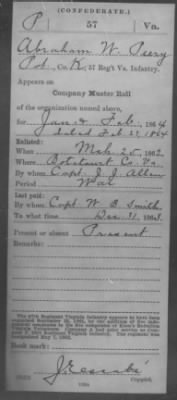 (CONFEDERATE.)
P 57 Va.
Abraham W. Perry
Pvt, Co. K, 57 Reg't Va. Infantry.
Appears on
Company Muster Roll
of the organization named above,
for Jan & Feb, 1864
dated Feb 29, 1864
Enlisted:
When Mch 25, 1862
Where Botetourt Co. Va.
By whom Capt. J. J. Allen
Period War
Last paid:
By whom Capt. W. B. Smith
To what time Dec 31, 1863.
Present or absent Present
Remarks:
Book mark:
Copyist.